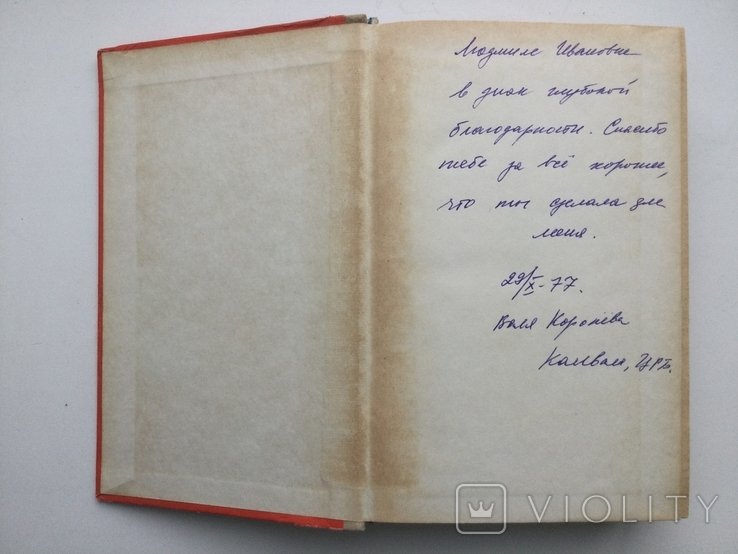 Людмиле Ивановне
в знак глубокой
благодарности. Спасибо
тебе за всё хорошее,
что ты сделала для
меня.
29/X-77.
Валя
ЦРБ.
VIOLITY